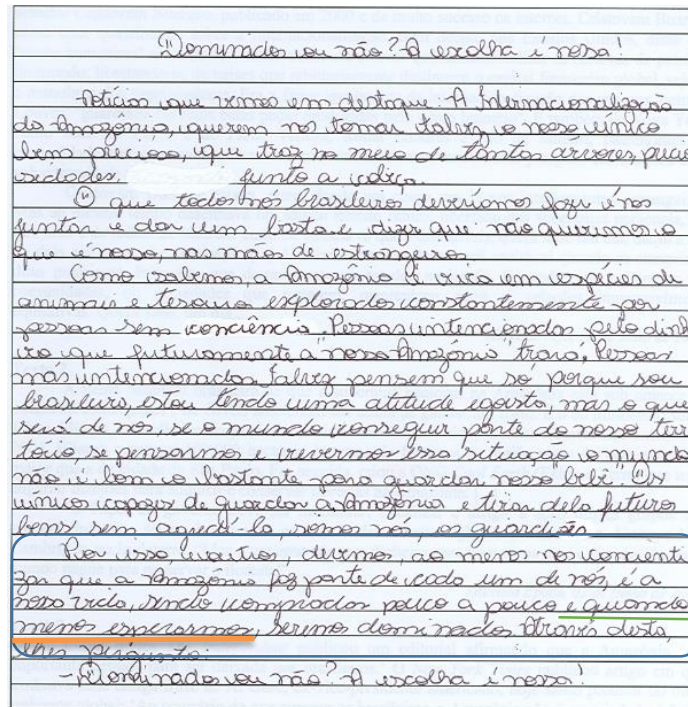 "Dominados ou não? A escolha é nossa!
Notícias que vimos em destaque. A Internacionalização
da Amazônia, querem nos tomar talvez o nosso único
bem precioso, que traz no meio de tantas árvores, precio
sidades, junto a cobiça.
O que todos nós brasileiros deveríamos fazer é nos
juntar e dar um basta e dizer que não queremos o
que é nosso, nas mãos de estrangeiros.
Como sabemos, a Amazônia é rica em espécies de
animai e tesouros explorados constantemente por
pessoas sem conciência. Pessoas intencionadas pelo dinh
iro que futuramente a nossa Amazônia trará. Pessoas
mas intencionadas talvez pensem que só porque sou
brasileiro, estou tendo uma atitude egoista, mas o que
será de nós, se o mundo conseguir parte do nosso terr
tório se pensarmos e revermos essa situação o mundo
não é bom o bastante para guardar nosso "bebê". Os
únicos capazes de guardar a Amazônia e tirar dela futuros
bens sem agredi-la, somos nós, os guardiões
Por isso e outros, devemos, ao menos nos concienti
zar que a Amazônia faz parte de cada um de nós, é a
nossa vida, sendo comprados pouco a pouco e quando
menos esperarmos, seremos dominados Através desta,
pergunto:
- Dominados ou não? A escolha é nossa!